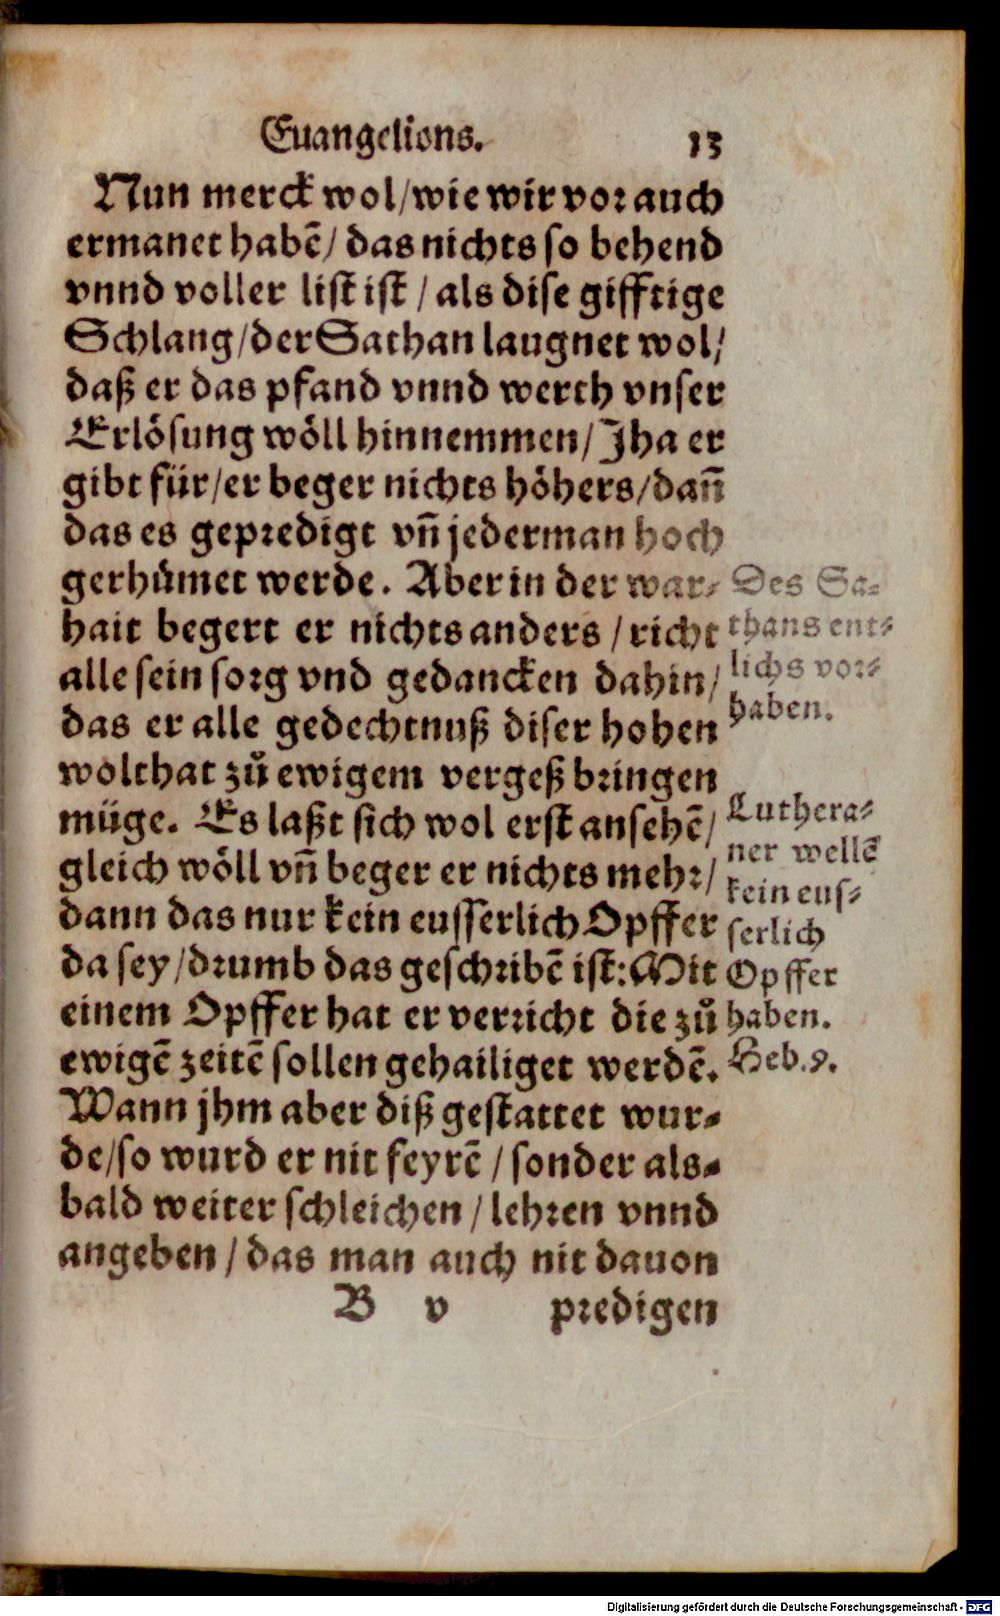 Euangelions. 13
Nun merck wol/wie wir vor auch
ermanet habẽ/ das nichts so behend
vnnd voller list ist / als dise gifftige
Schlang/der Sathan laugnet wol/
daß er das pfand vnnd werth vnser
Erlösung wöll hinnemmen/Jha er
gibt für/er beger nichts höhers/dañ
das es gepredigt vñ jederman hoch
gerhůmet werde. Aber in der war-
hait begert er nichts anders / richt
alle sein sorg vnd gedancken dahin/
das er alle gedechtnuß diser hohen
wolthat zů ewigem vergeß bringen
müge. Es laßt sich wol erst ansehẽ/
gleich wöll vñ beger er nichts mehr/
dann das nur kein eusserlich Opffer
da sey/drumb das geschribẽ ist: Mit
einem Opffer hat er verricht die zů
ewigẽ zeitẽ sollen gehailiget werdẽ.
Wann jhm aber diß gestattet wur-
de/so wurd er nit feyrẽ / sonder als-
bald weiter schleichen / lehren vnnd
angeben / das man auch nit dauon
B v predigen
Des Sa-
thans ent-
lichs vor-
haben.
Luthera-
ner wellẽ
kein eus-
serlich
Opffer
haben.
Heb. 9.
Digitalisierung gefördert durch die Deutsche Forschungsgemeinschaft - DFG